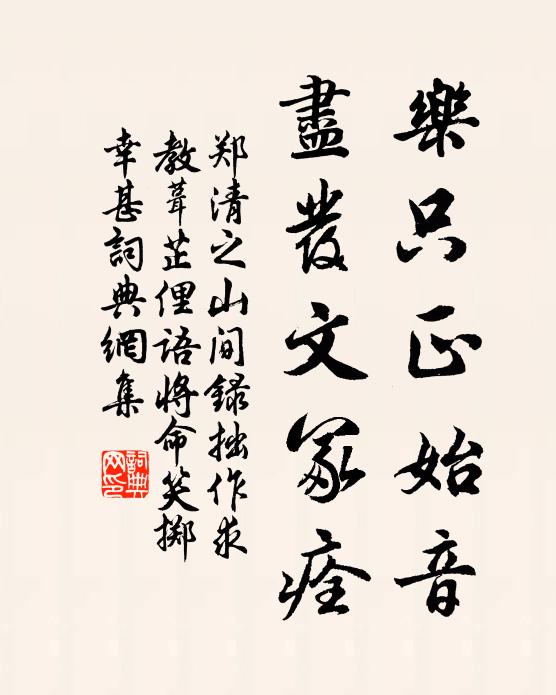 樂只正始音
盡發文冢瘞
郑清之山間録拙作求
教葺芷俚語將命笑擲
幸甚詞典網集
詞典
网印